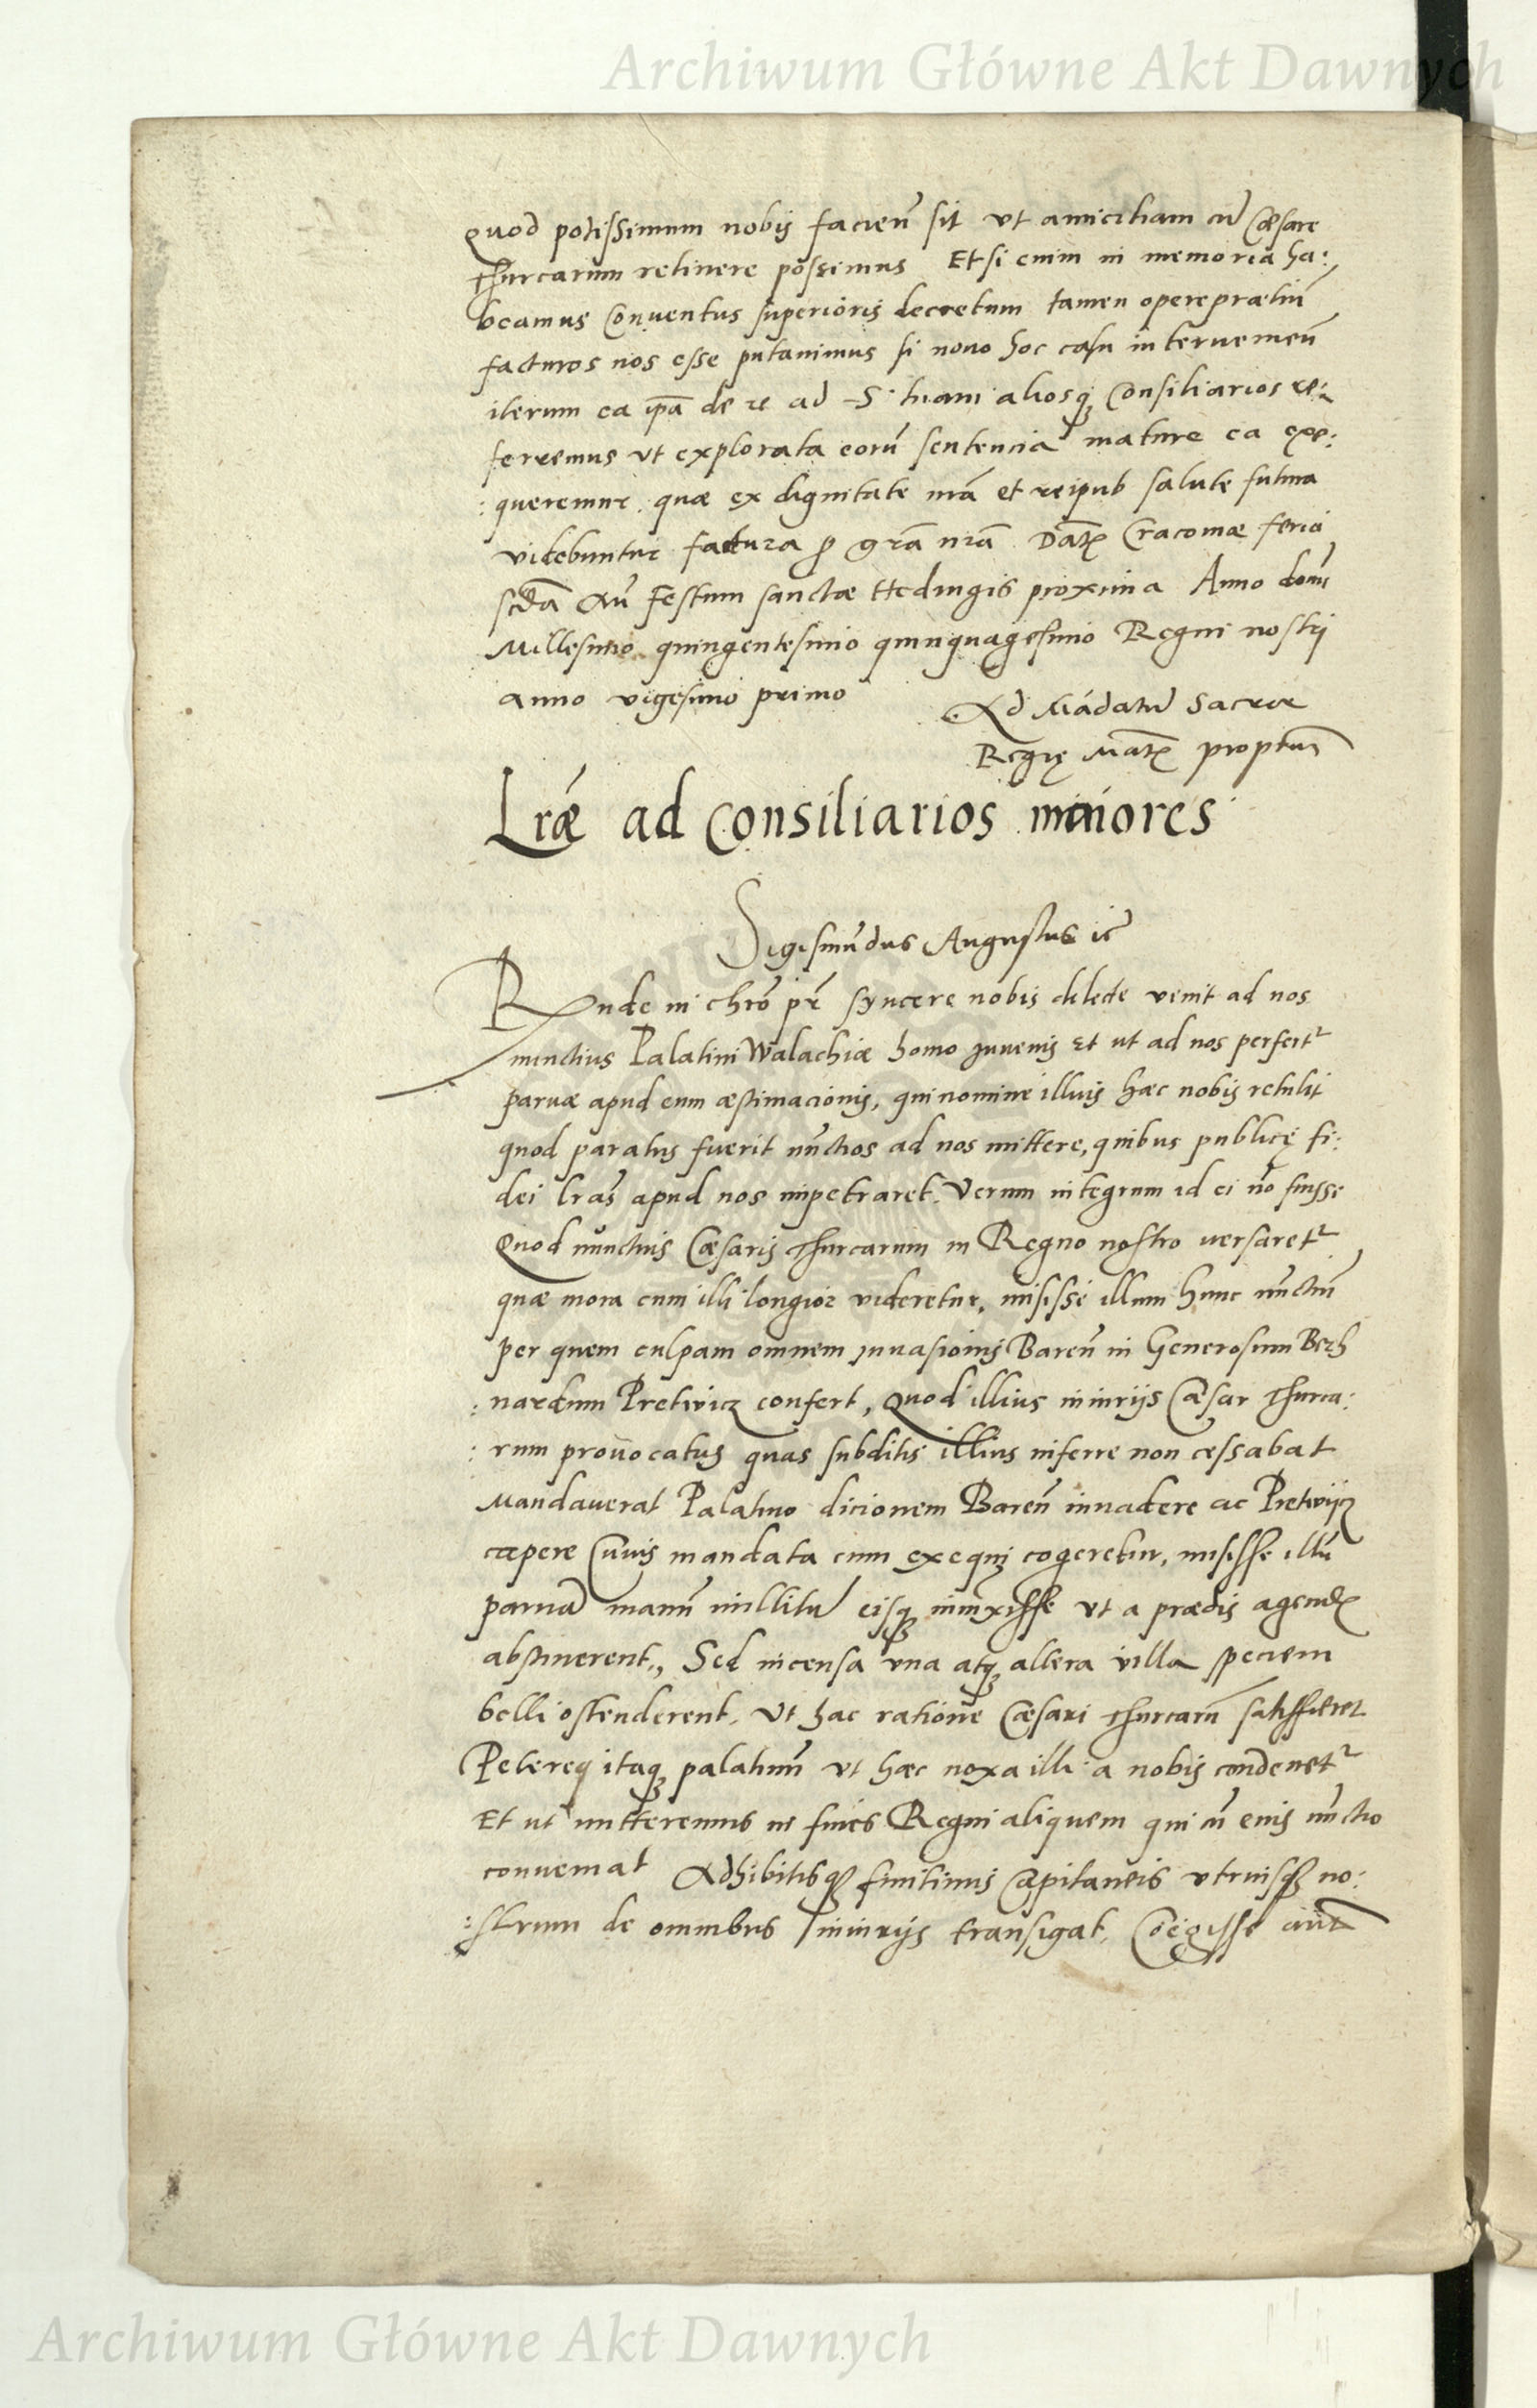 Archiwum Główne Akt Dawnych
quod potissimum nobis facien̄ sit ut amicitiam cū Cæsare
Thurcarum retinere possimus Et si enim in memoria ha:
beamus Conventus superioris decretum tamen operepræciū
facturos nos esse putavimus si novo hoc casu intervenien̄
iterum ea ip̄a de re ad S. tuam aliosq; Consiliarios re:
ferremus ut explorata eorū sentencia mature ea exe:
:queremur quæ ex dignitate nr̄a et reipub salute futura
videbuntur factura p̱ gr̄a nr̄a Datꝭ Cracoviæ feria
scd̄a an̄ Festum sanctæ Hedvigis proxima Anno domi
Millesimo quingentesimo quinquagesimo Regni nostrj
anno vigesimo primo
Ad Mādatū Sacræ
Regię Matꝭ proprium
Lr̄æ ad Consiliarios minores
Sigismūdus Augustus ic̄
Rnde in chr̄o pr̄ syncere nobis dilecte venit ad nos
nunctius Palatini Walachiæ homo juvenis et ut ad nos perfertᵘʳ
parvæ apud eum æstimacionis, qui nomine illius hæc nobis retulit
quod paratus fuerit nūctios ad nos mittere, quibus publicę fi:
dei lr̄as apud nos impetraret. Verum integrum id ei nō fuisse
Quod nunctius Cæsaris Thurcarum in Regno nostro versaretᵘʳ
quæ mora cum illi longior videretur, misisse illum hunc nūctiū
per quem culpam omnem invasionis Baren̄ in Generosum Berh
:nardum Pretwicz confert, Quod illius iniurijs Cæsar Thurca:
:rum provocatus quas subditis illius inferre non cessabat
Mandaverat Palatino dicionem Baren̄ invadere ac Pretwijcz
capere Cuius mandata cum exequj cogeretur, misisse illū
parvā manū militū eisq; iniūxisse ut a prædis agendꝭ
abstinerent, Sed incensa una atq; altera villa speciem
belli ostenderent, Ut hac ratione Cæsari Thurcarū satisfieret
Peterej itaq; palatinū ut hæc noxa illi a nobis condonetᵘʳ
Et ut mitteremus in fines Regni aliquem qui cū eius nūctio
conveniat Adhibitisq; finitimis Capitaneis utriusq; no:
:strum de omnibus iniurijs transigat, Coēgisse aūt
Archiwum Główne Akt Dawnych